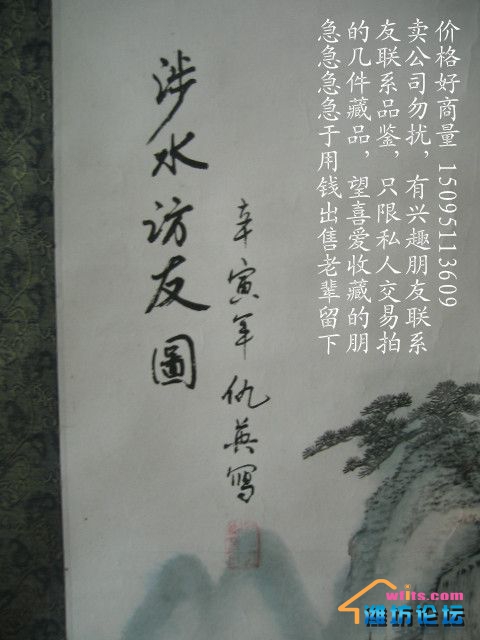 涉水访友圖
辛寅年仇英寫
急急急急于用钱出售老辈留下
的几件藏品，望喜爱收藏的朋
友联系品鉴，只限私人交易拍
卖公司勿扰，有兴趣朋友联系
价格好商量 15095113609
潍坊论坛